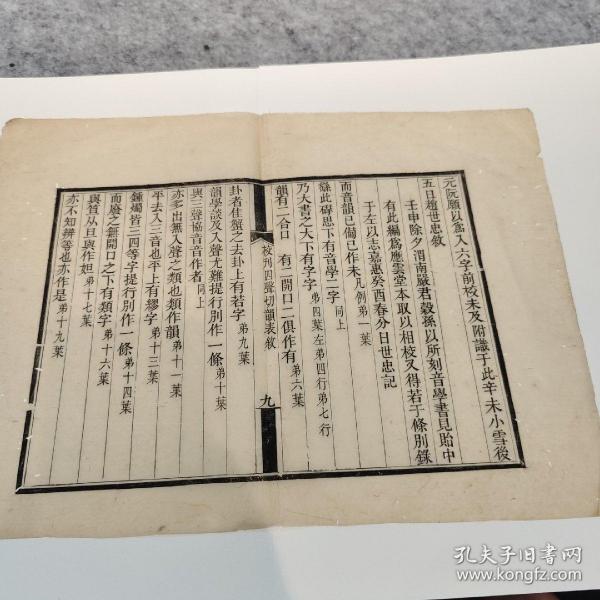 元阮願以爲入六字前校未及附識于此辛未小雪後
五日趙世忠敘
壬申除夕渭南嚴君穀孫以所刻音學書見貽中
有此編爲應雲堂本取以相校又得若于條別錄
于左以志嘉惠癸酉春分日世忠記
而音韻已備已作未凡例弟一葉
繇此碍思下有音學二字同上
乃大書之大下有字字弟四葉左弟四行弟七行
韻有二合口 有二開口二俱作有弟六葉
校刊四聲切韻表敘
九
卦者佳蟹之去卦上有若字弟九葉
韻學談及入聲尤難提行別作一條弟十葉
與三聲協音音作者同上
亦多出無入聲之類也類作韻弟十一葉
平去入三音也平上有繆字弟十三葉
鍾燭皆三四等字提行別作一條弟十四葉
而廢之無開口之下有類字弟十六葉
與笡从旦與作妲弟十七葉
亦不知辨等也亦作是弟十九葉
孔夫子旧书网
www.kongfz.com